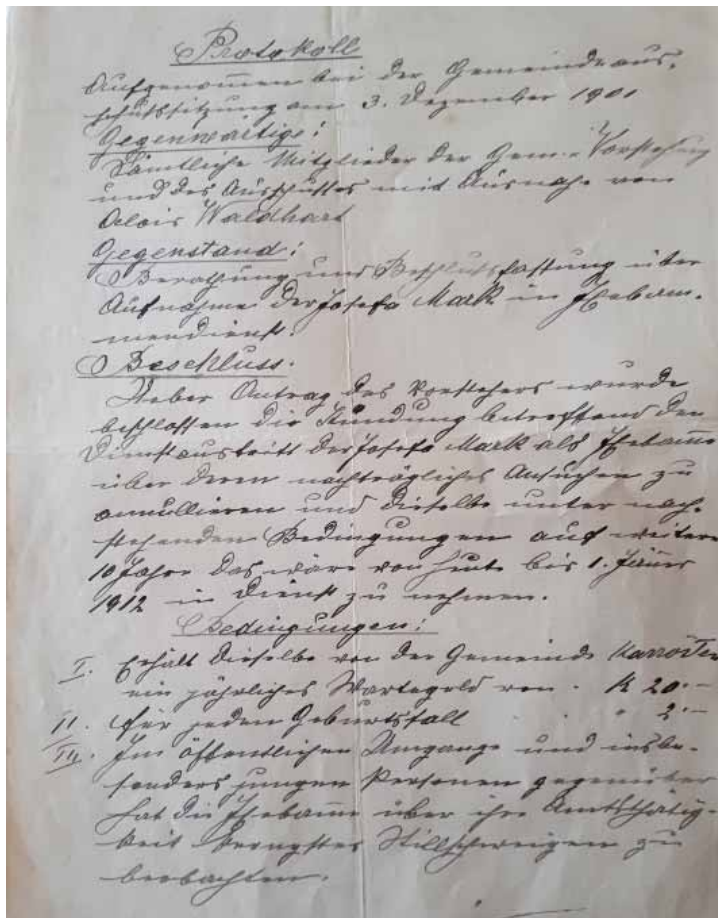 Protokoll
Aufgenommen bei der Gemeindeaus-
schußsitzung am 3. Dezember 1901
Gegenwärtige:
Sämtliche Mitglieder der Gem. Vorstehung
und des Ausschusses mit Ausnahme von
Alois Waldhart
Gegenstand:
Berathung und Beschlussfassung über
Aufnahme der Josefa Mark in Hebam-
mendienst.
Beschluss.
Ueber Antrag des Vorstehers wurde
beschlossen die Kündung betreffend den
Dienstaustritt der Josefa Mark als Hebame
über deren nachträgliches Ansuchen zu
annullieren und dieselbe unter nach-
stehenden Bedingungen auf weitere
10 Jahre das wäre von heute bis 1. Jäner
1912 in Dienst zu nehmen.
Bedingungen:
I. Erhält dieselbe von der Gemeinde Karrösten
ein jährliches Wartegeld von K 20.–
II. für jeden Geburtsfall " 2.–
III. Im öffentlichen Umgange und insbe-
sonders jungen Personen gegenüber
hat die Hebame über ihre Amtsthätig-
keit strengstes Stillschweigen zu
beobachten.